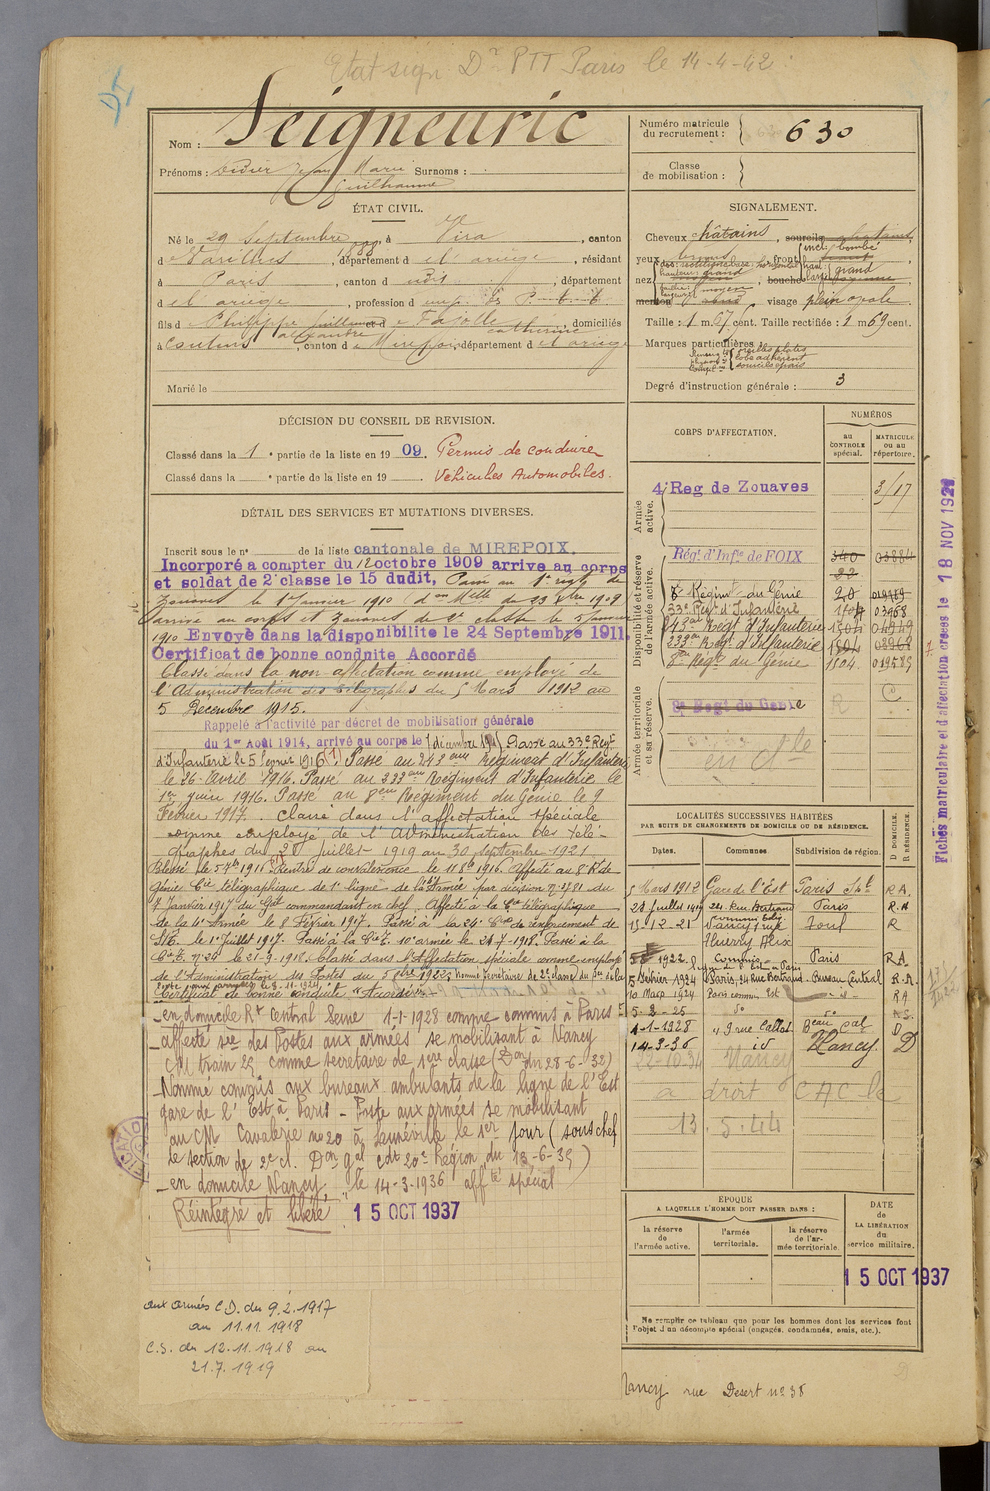 Etat sign Dr PTT Paris le 14-4-42
Nom : Seigneuric
Prénoms : Didier Jean Marie Surnoms :
Guilhaume
ÉTAT CIVIL.
Né le 29 Septembre 1889, à Vira, canton
de Varilhes, département de l'ariège, résidant
à Paris, canton d, département
d, profession d'emp. des P. t. t.
fils de Philippe Guillaume et de Fajolle Catherine, domiciliés
à Coutens, canton de Mirepoix, département de l'ariège
Marié le
DÉCISION DU CONSEIL DE REVISION.
Classé dans la 1e partie de la liste en 1909. Permis de conduire
Classé dans la e partie de la liste en 19 . Véhicules Automobiles.
DÉTAIL DES SERVICES ET MUTATIONS DIVERSES.
Inscrit sous le no de la liste cantonale de MIREPOIX.
Incorporé a compter du 12 octobre 1909 arrive au corps
et soldat de 2e classe le 15 dudit,
Zouaves le 1er Janvier 1910
arrivé au corps et Zouaves de 2e classe le 1 Janvier
1910 Envoyé dans la disponibilite le 24 Septembre 1911.
Certificat de bonne conduite Accordé
Classé dans la non affectation comme employé de
l'Administration des télégraphes du 5 Mars 1912 au
5 Décembre 1915.
Rappelé à l'activité par décret de mobilisation générale
du 1er Août 1914, arrivé au corps le 7 décembre 1915 Passé au 33e Regt
d'Infanterie le 5 février 1916 (1) Passé au 243eme Régiment d'Infanterie
le 26 Avril 1916. Passé au 333eme Régiment d'Infanterie le
1er juin 1916. Passé au 8eme Régiment du Génie le 9
Février 1917. Classé dans l'affectation spéciale
comme employé de l'Administration des télé-
graphes du 28 juillet 1919 au 30 septembre 1921.
Blessé le Rentré de convalescence le 1916. Affecté au 8e R. de
Génie Cie télégraphique de 1e ligne de la Armée par décision no 2781 du
7 Janvier 1917 du Gal commandant en chef. Affecté à la Cie télégraphique
de la 4e Armée le 8 Février 1917. Passé à la 24e Cie de renforcement de
le 1er Juillet 1917. Passé à la Cie T. 10e armée le 23-7-1918. Passé à la
le 21-9-1918. Classé dans l'Affectation spéciale comme employé
de l'Administration des Postes du 5 1922
Certificat de bonne conduite "Accordé"
_en domicile Rt Central Seine 1-1-1928 comme commis à Paris
_affecté sce des Postes aux armées se mobilisant à Nancy
CM train 25 comme secrétaire de 1ère classe (Don du 28-6-32)
_Nommé commis aux bureaux ambulants de la ligne de l'Est
gare de l'Est à Paris - Poste aux armées se mobilisant
au CM Cavalerie no 20 à Lunéville le 1er jour (sous chef
de section de 2e cl. Don gal cdt 20e Région du 13-6-35)
_en domicile Nancy, le 14-3-1936 affté spécial
Réintégré et libéré 15 OCT 1937
aux armées C.D. du 9.2.1917
au 11.11.1918
C.S. du 12.11.1918 au
21.7.1919
Numéro matricule
du recrutement : 630
Classe
de mobilisation :
SIGNALEMENT.
Cheveux châtains, sourcils châtains,
yeux, front incl. bombé haut. grand
nez, bouche
menton, visage plein ovale
Taille : 1 m. 67 cent. Taille rectifiée : 1 m 69 cent.
Marques particulières
oreilles plates
lobe adhérent
sourcils épais
Degré d'instruction générale : 3
CORPS D'AFFECTATION.
NUMÉROS
au CONTROLE spécial.
MATRICULE ou au répertoire.
Armée active.
4e Reg de Zouaves 3/17
Disponibilité et réserve de l'armée active.
Régt d'Infie de FOIX 340 03884
8e Régiment du Génie 20
33e Regt d'Infanterie 1504 03968
243e Regt d'Infanterie 1504 04949
333e Regt d'Infanterie 1504
8e Régt du Génie 1504. 019585
Armée territoriale et sa réserve.
8e Regt de Genie
R C.
en Dle
LOCALITÉS SUCCESSIVES HABITÉES
PAR SUITE DE CHANGEMENTS DE DOMICILE OU DE RÉSIDENCE.
Dates. Communes Subdivision de région. D DOMICILE. R RÉSIDENCE.
5 Mars 1912 Gare de l'Est Paris Spl R A.
28 juillet 1919 24. Rue Bertrand Paris R.A
15-12-21 Nancy rue Thierry Alix Toul R
1922 Commis Paris R A.
5 Février 1924 Paris, 24 Rue Bertrand Bureau Central R.A
10 Mars 1924 Paris commis Est -id- RA
5-8-25 do do
1-1-1928 9 rue Callot Beau cal D
14-3-36 id Nancy. D
22-10-34 Nancy
a droit CAC le
13.5.44
EPOQUE
A LAQUELLE L'HOMME DOIT PASSER DANS :
la réserve de l'armée active.
l'armée territoriale.
la réserve de l'armée territoriale.
DATE DE LA LIBÉRATION du service militaire.
15 OCT 1937
Ne remplir ce tableau que pour les hommes dont les services font
l'objet d'un décompte spécial (engagés, condamnés, omis, etc.).
Nancy rue Desert no 38
Fiches matriculaire et d'affectation créées le 18 NOV 192